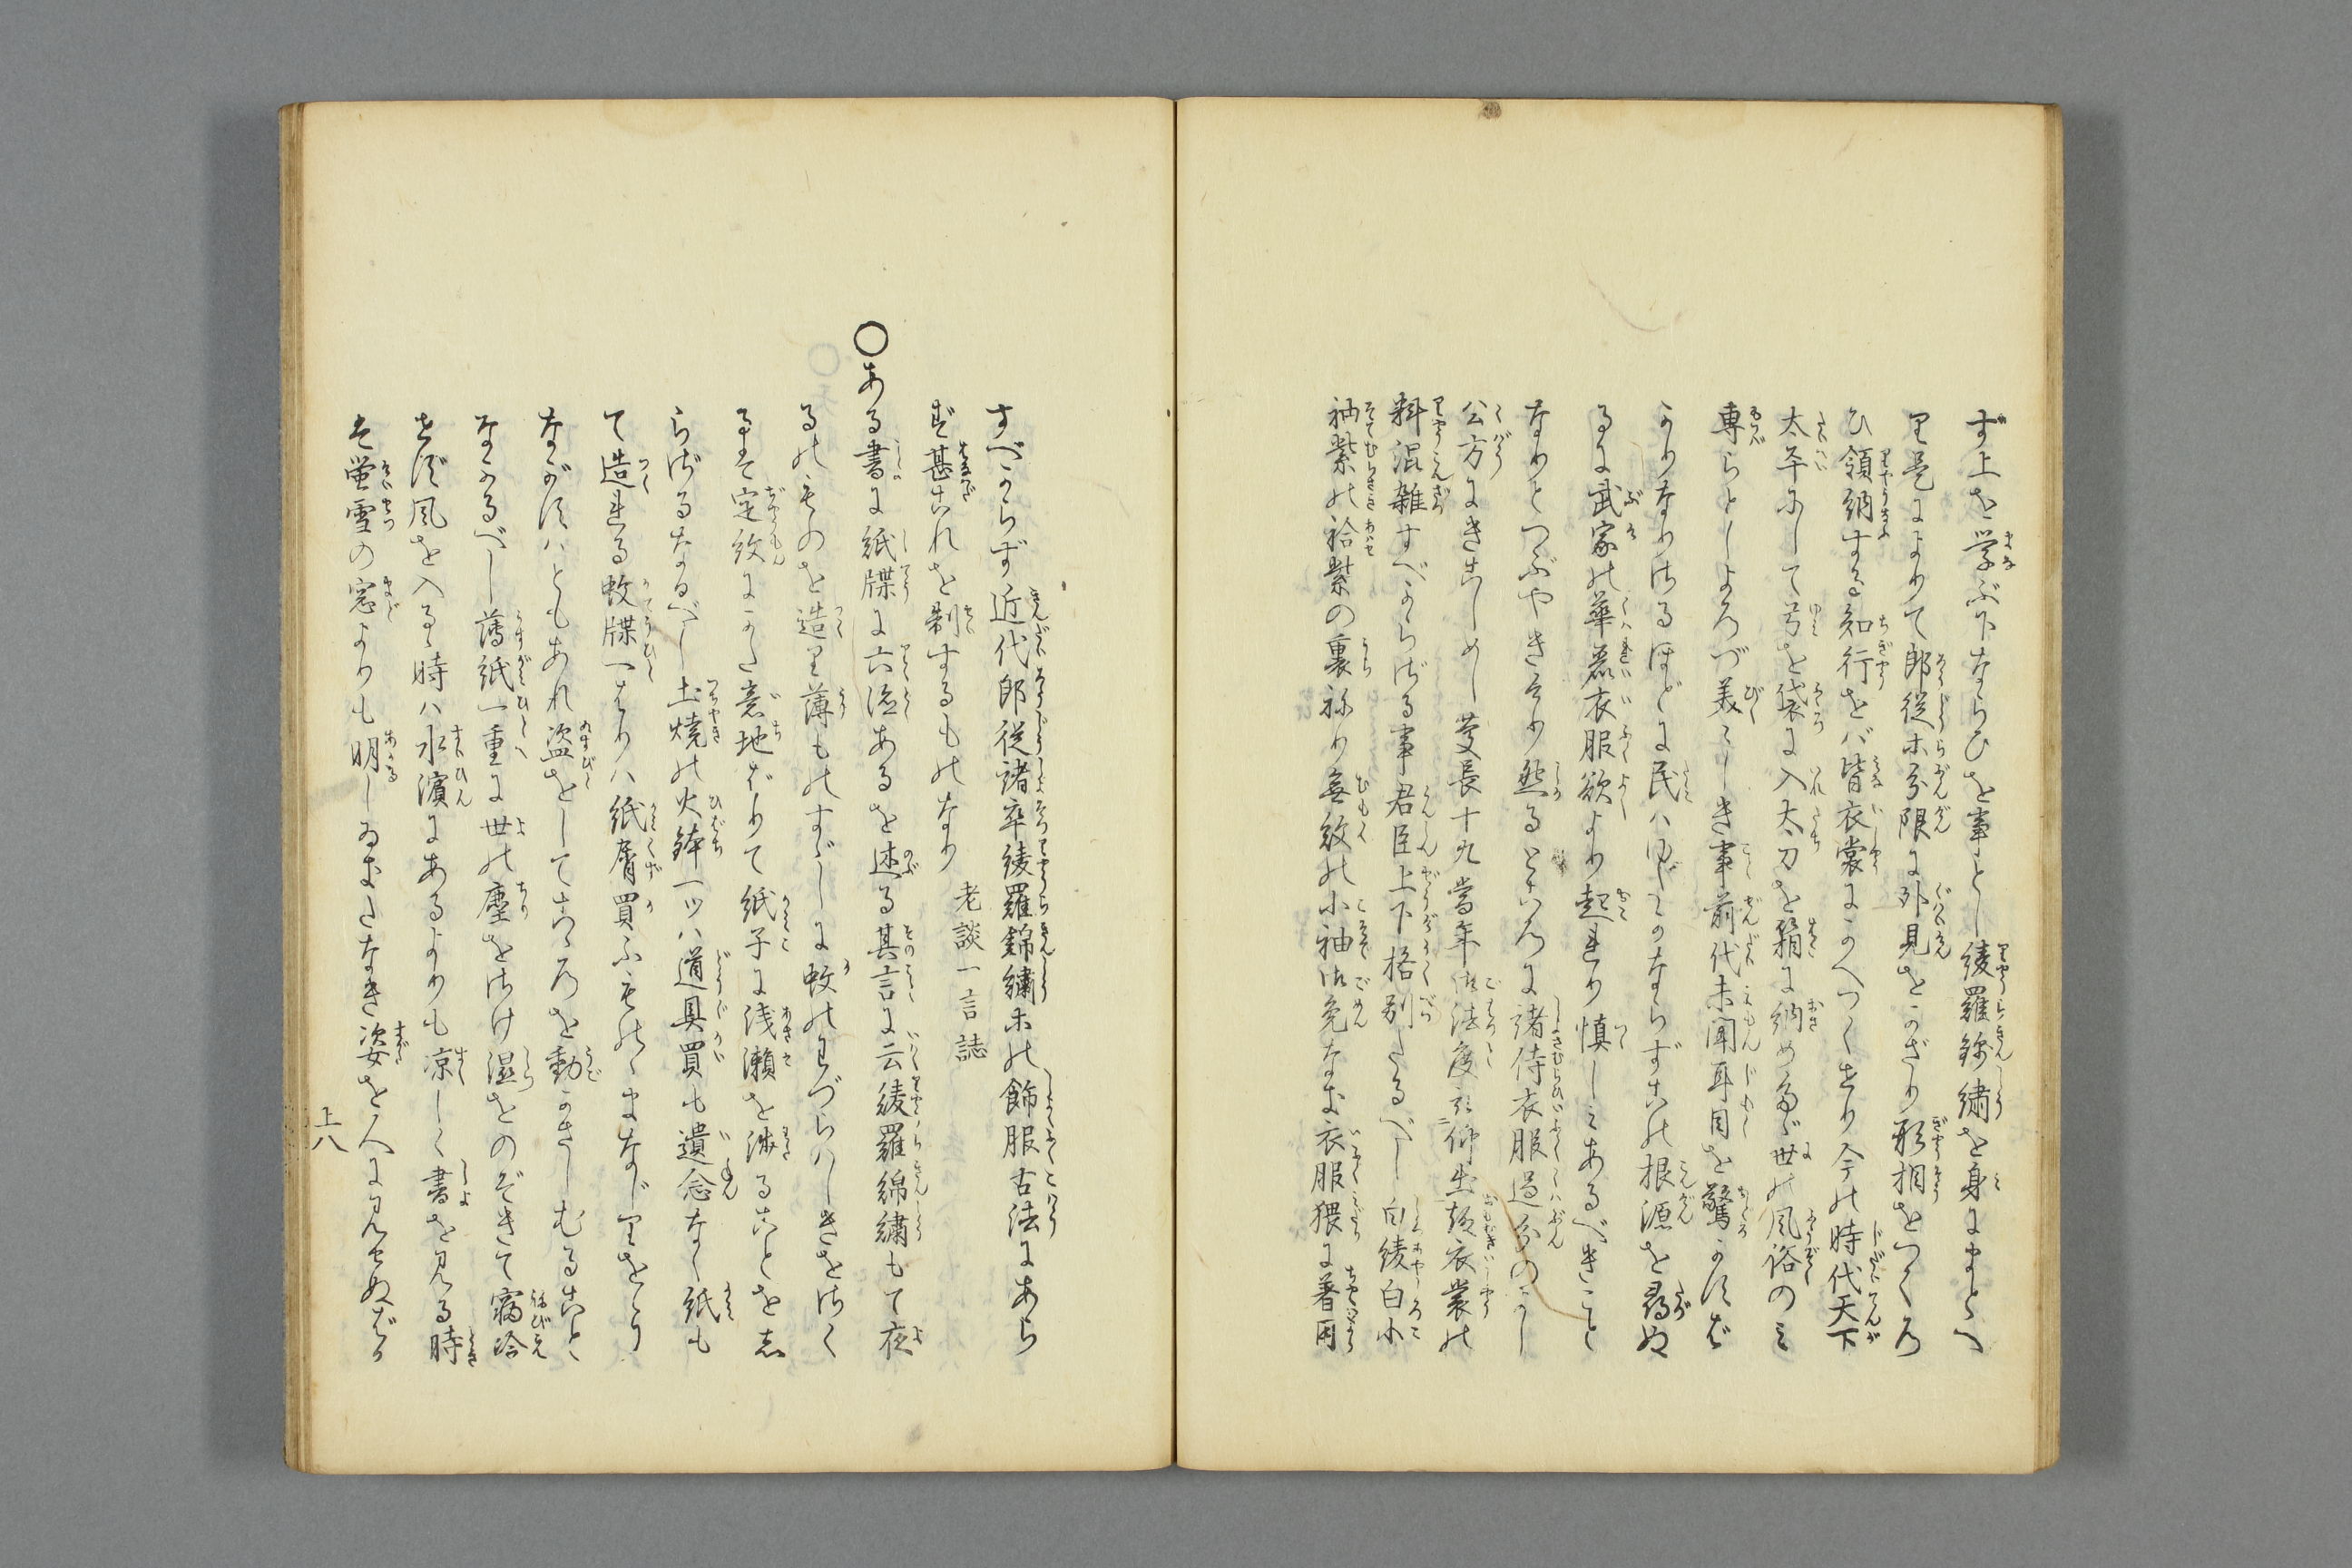 ず上を学ぶ下ならひを事とし綾羅錦繍を身にまとへ
り是によりて郎従ホ分限に外見をかざり形相をつくろ
ひ領納する知行をバ皆衣裳にかへつくせり今の時代天下
太平にして弓を袋に入太刀を箱に納め多ゞ世の風俗のミ
専らとしよろづ美〻しき事前代未聞耳目を驚かすば
かりなりけるほどに民ハゆたかならず其根源を尋ぬ
るに武家の華麗衣服欲より起れり慎しミあるべきこと
なりとつぶやきそり然るところに諸侍衣服過分のよし
公方にきこしめし慶長十九当年御法度被仰出趣衣裳の
料混雑すべからざる事君臣上下格別たるべし白綾白小
袖紫の袷紫の裏練り無紋の小袖御免なき衣服猥に着用
すべからず近代郎従諸卒綾羅錦繍ホの飾服古法にあら
ず甚これを制するものなり 老談一言誌
〇ある書に紙牒に六徳あるを述る其言に云綾羅綿繍もて夜
るのものを造り薄ものすゞしに蚊のわづらハしきをさく
る事定紋にかた意地ばりて紙子に浅瀬を渉ることをし
らざるなるべし土焼の火鉢一ツハ道具買も遺念なく紙も
て造れる蚊牒一はりハ紙屑買ふものゝまなじりをとり
ながすハともあれ盗をしてこゝろを動かさしむること
なかるべし薄紙一重に世の塵をさけ湿をのぞきて寝冷
せず風を入るゝ時ハ水濱にあるよりも凉しく書を見る時
は蛍雪の窓よりも明しゐぎたなき姿を人に見せぬばか
上八